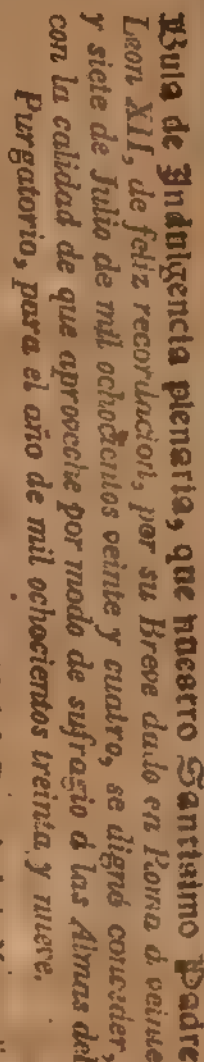 Bula de Indulgencia plenaria, que nuestro Santisimo Padre
Leon XII, de feliz recordacion, por su Breve dado en Roma á veinte
y siete de Julio de mil ochocientos veinte y cuatro, se dignó conceder,
con la calidad de que aproveche por modo de sufragio á las Almas del
Purgatorio, para el año de mil ochocientos treinta y nueve.